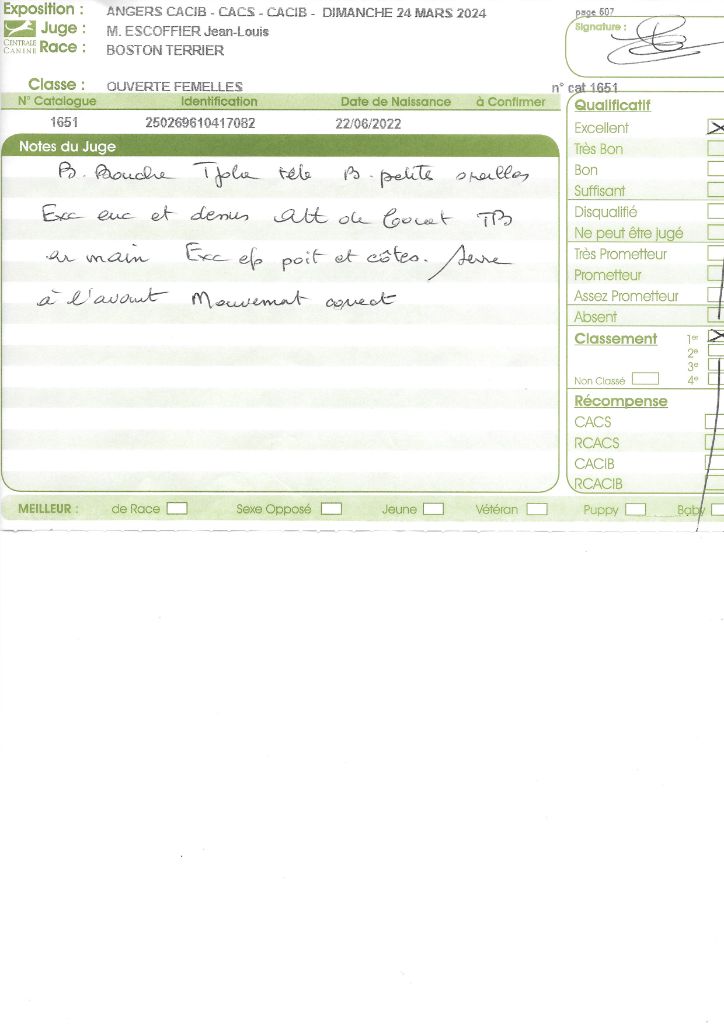 Exposition : ANGERS CACIB - CACS - CACIB - DIMANCHE 24 MARS 2024
page 607
Juge : M. ESCOFFIER Jean-Louis
Signature :
CENTRALE CANINE
Race : BOSTON TERRIER
Classe : OUVERTE FEMELLES
n° cat 1651
N° Catalogue Identification Date de Naissance à Confirmer
1651 250269610417082 22/06/2022
Notes du Juge
B. Bouche Tjolie tête B. petite oreilles
Exc enc et dessus Att de fouet TB
ar main Exc ep poit et côtes. Serre
à l'avant Mouvement correct
Qualificatif
Excellent
Très Bon
Bon
Suffisant
Disqualifié
Ne peut être jugé
Très Prometteur
Prometteur
Assez Prometteur
Absent
Classement 1er
2e
3e
Non Classé 4e
Récompense
CACS
RCACS
CACIB
RCACIB
MEILLEUR : de Race Sexe Opposé Jeune Vétéran Puppy Baby